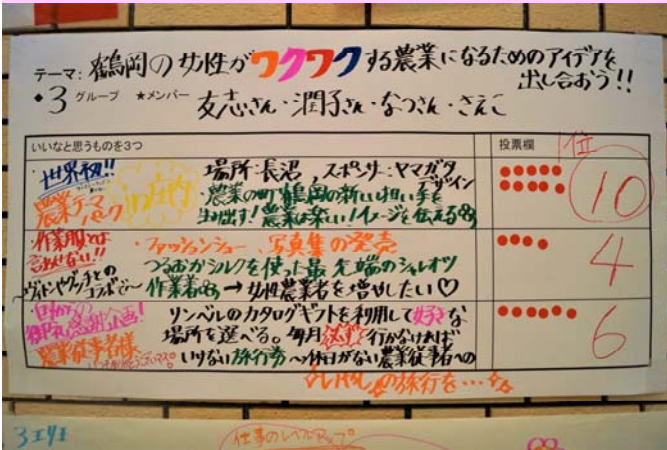 テーマ: 鶴岡の女性がワクワクする農業になるためのアイデアを
出し合おう!!
◆3 グループ ★メンバー 友志さん・潤子さん・なつさん・さえこ
いいなと思うものを3つ
投票欄
1位
世界初!!
農業テーマパーク
in庄内
場所:長沼、スポンサー:ヤマガタデザイン
・農業の町鶴岡の新しい担い手を
生み出す!農業は楽しい!イメージを伝える
10
作業服とは
言わせない!!
〜ヴィトンやグッチとのコラボで〜
・ファッションショー、写真集の発売
つるおかシルクを使った最先端のシャレオツ
作業着 → 女性農業者を増やしたい♡
4
国からの
御礼感謝企画!
農業従事者様
リンベルのカタログギフトを利用して好きな
場所を選べる。毎月必ず行かなければ
いけない旅行券 〜休日がない農業従事者への
の旅行を…☆
6
3エリエ
仕事のレベルアップ